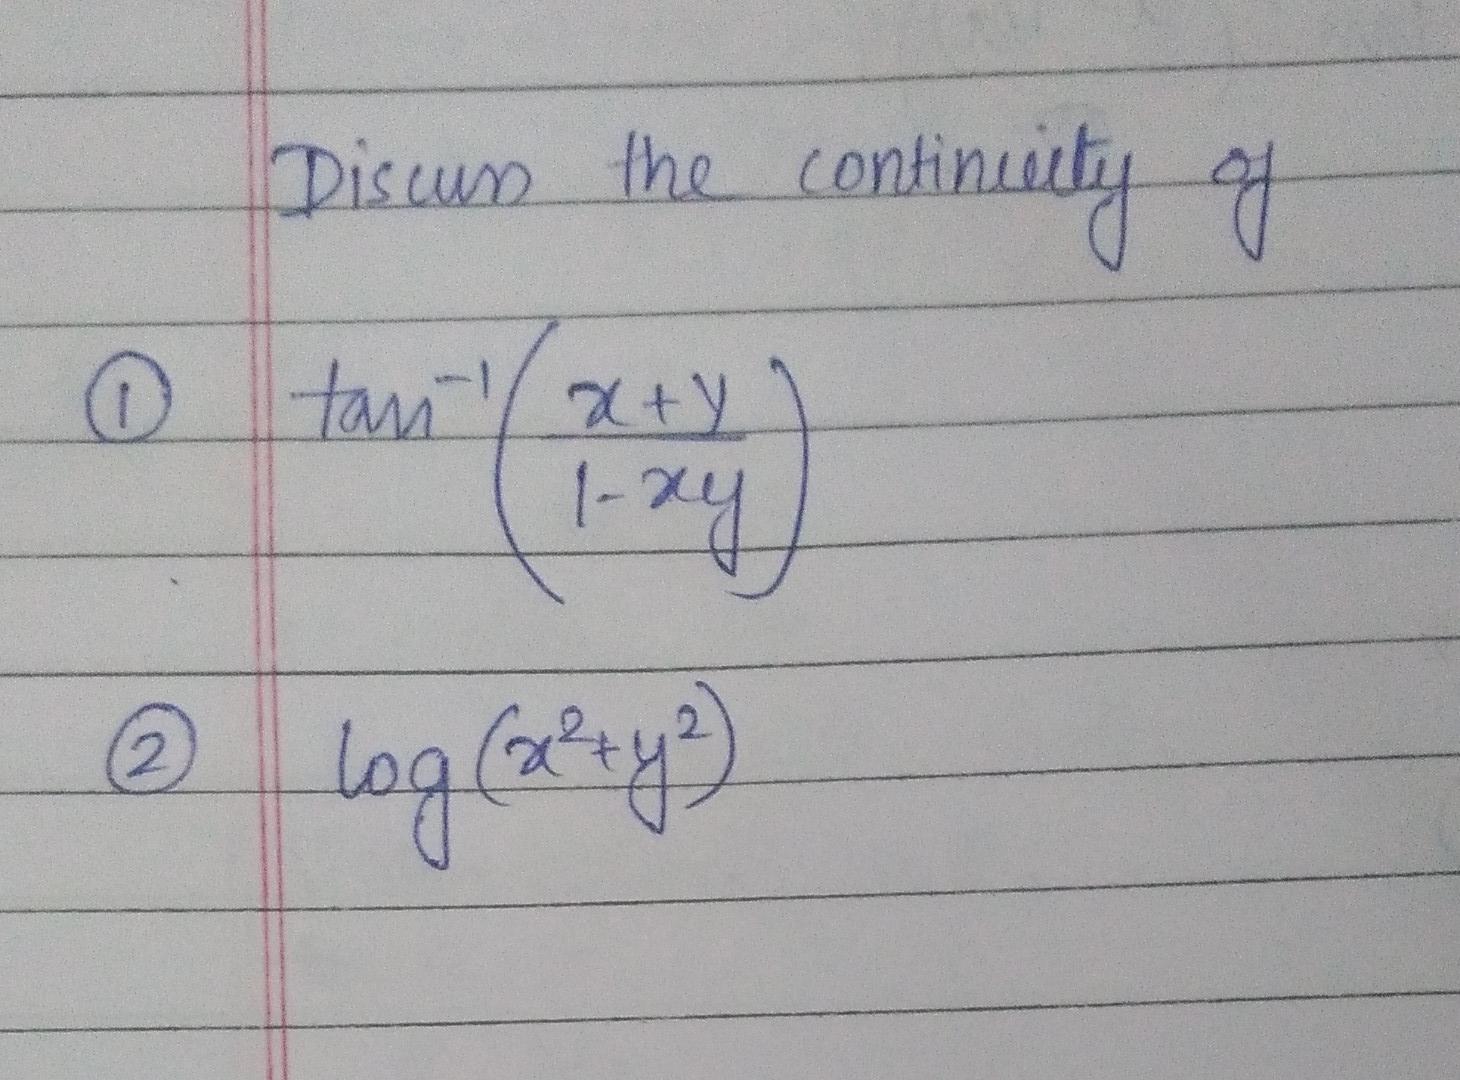 Discuss the continuity of
① tan⁻¹(x+y / 1-xy)
② log(x²+y²)